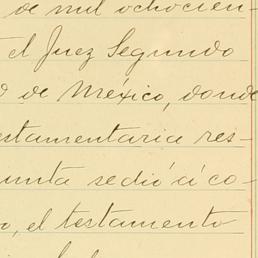 de mil ochocien-
el Juez Segundo
de México, donde
estamentaria res-
unta se dió á co-
o, el testamento